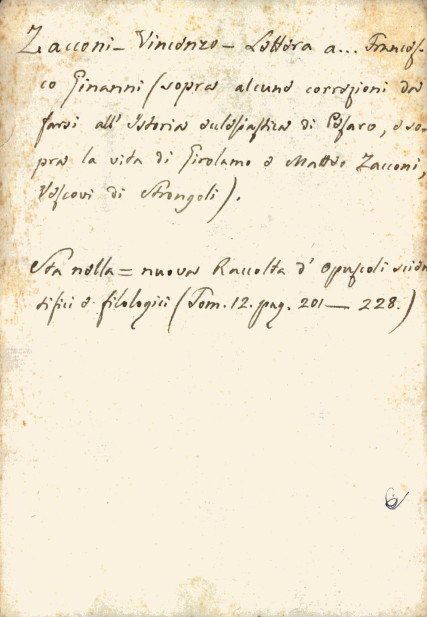 Zacconi - Vincenzo - Lettera a... Frances-
co Ginanni (sopra alcune correzioni da
farsi all' Istoria eclesiastica di Pesaro, e so-
pra la vita di Girolamo e Matteo Zacconi,
Vescovi di Strongoli).
Sta nella = nuova Raccolta d' Opuscoli scien
tifici e filologici (Tom. 12. pag. 201 — 228.)